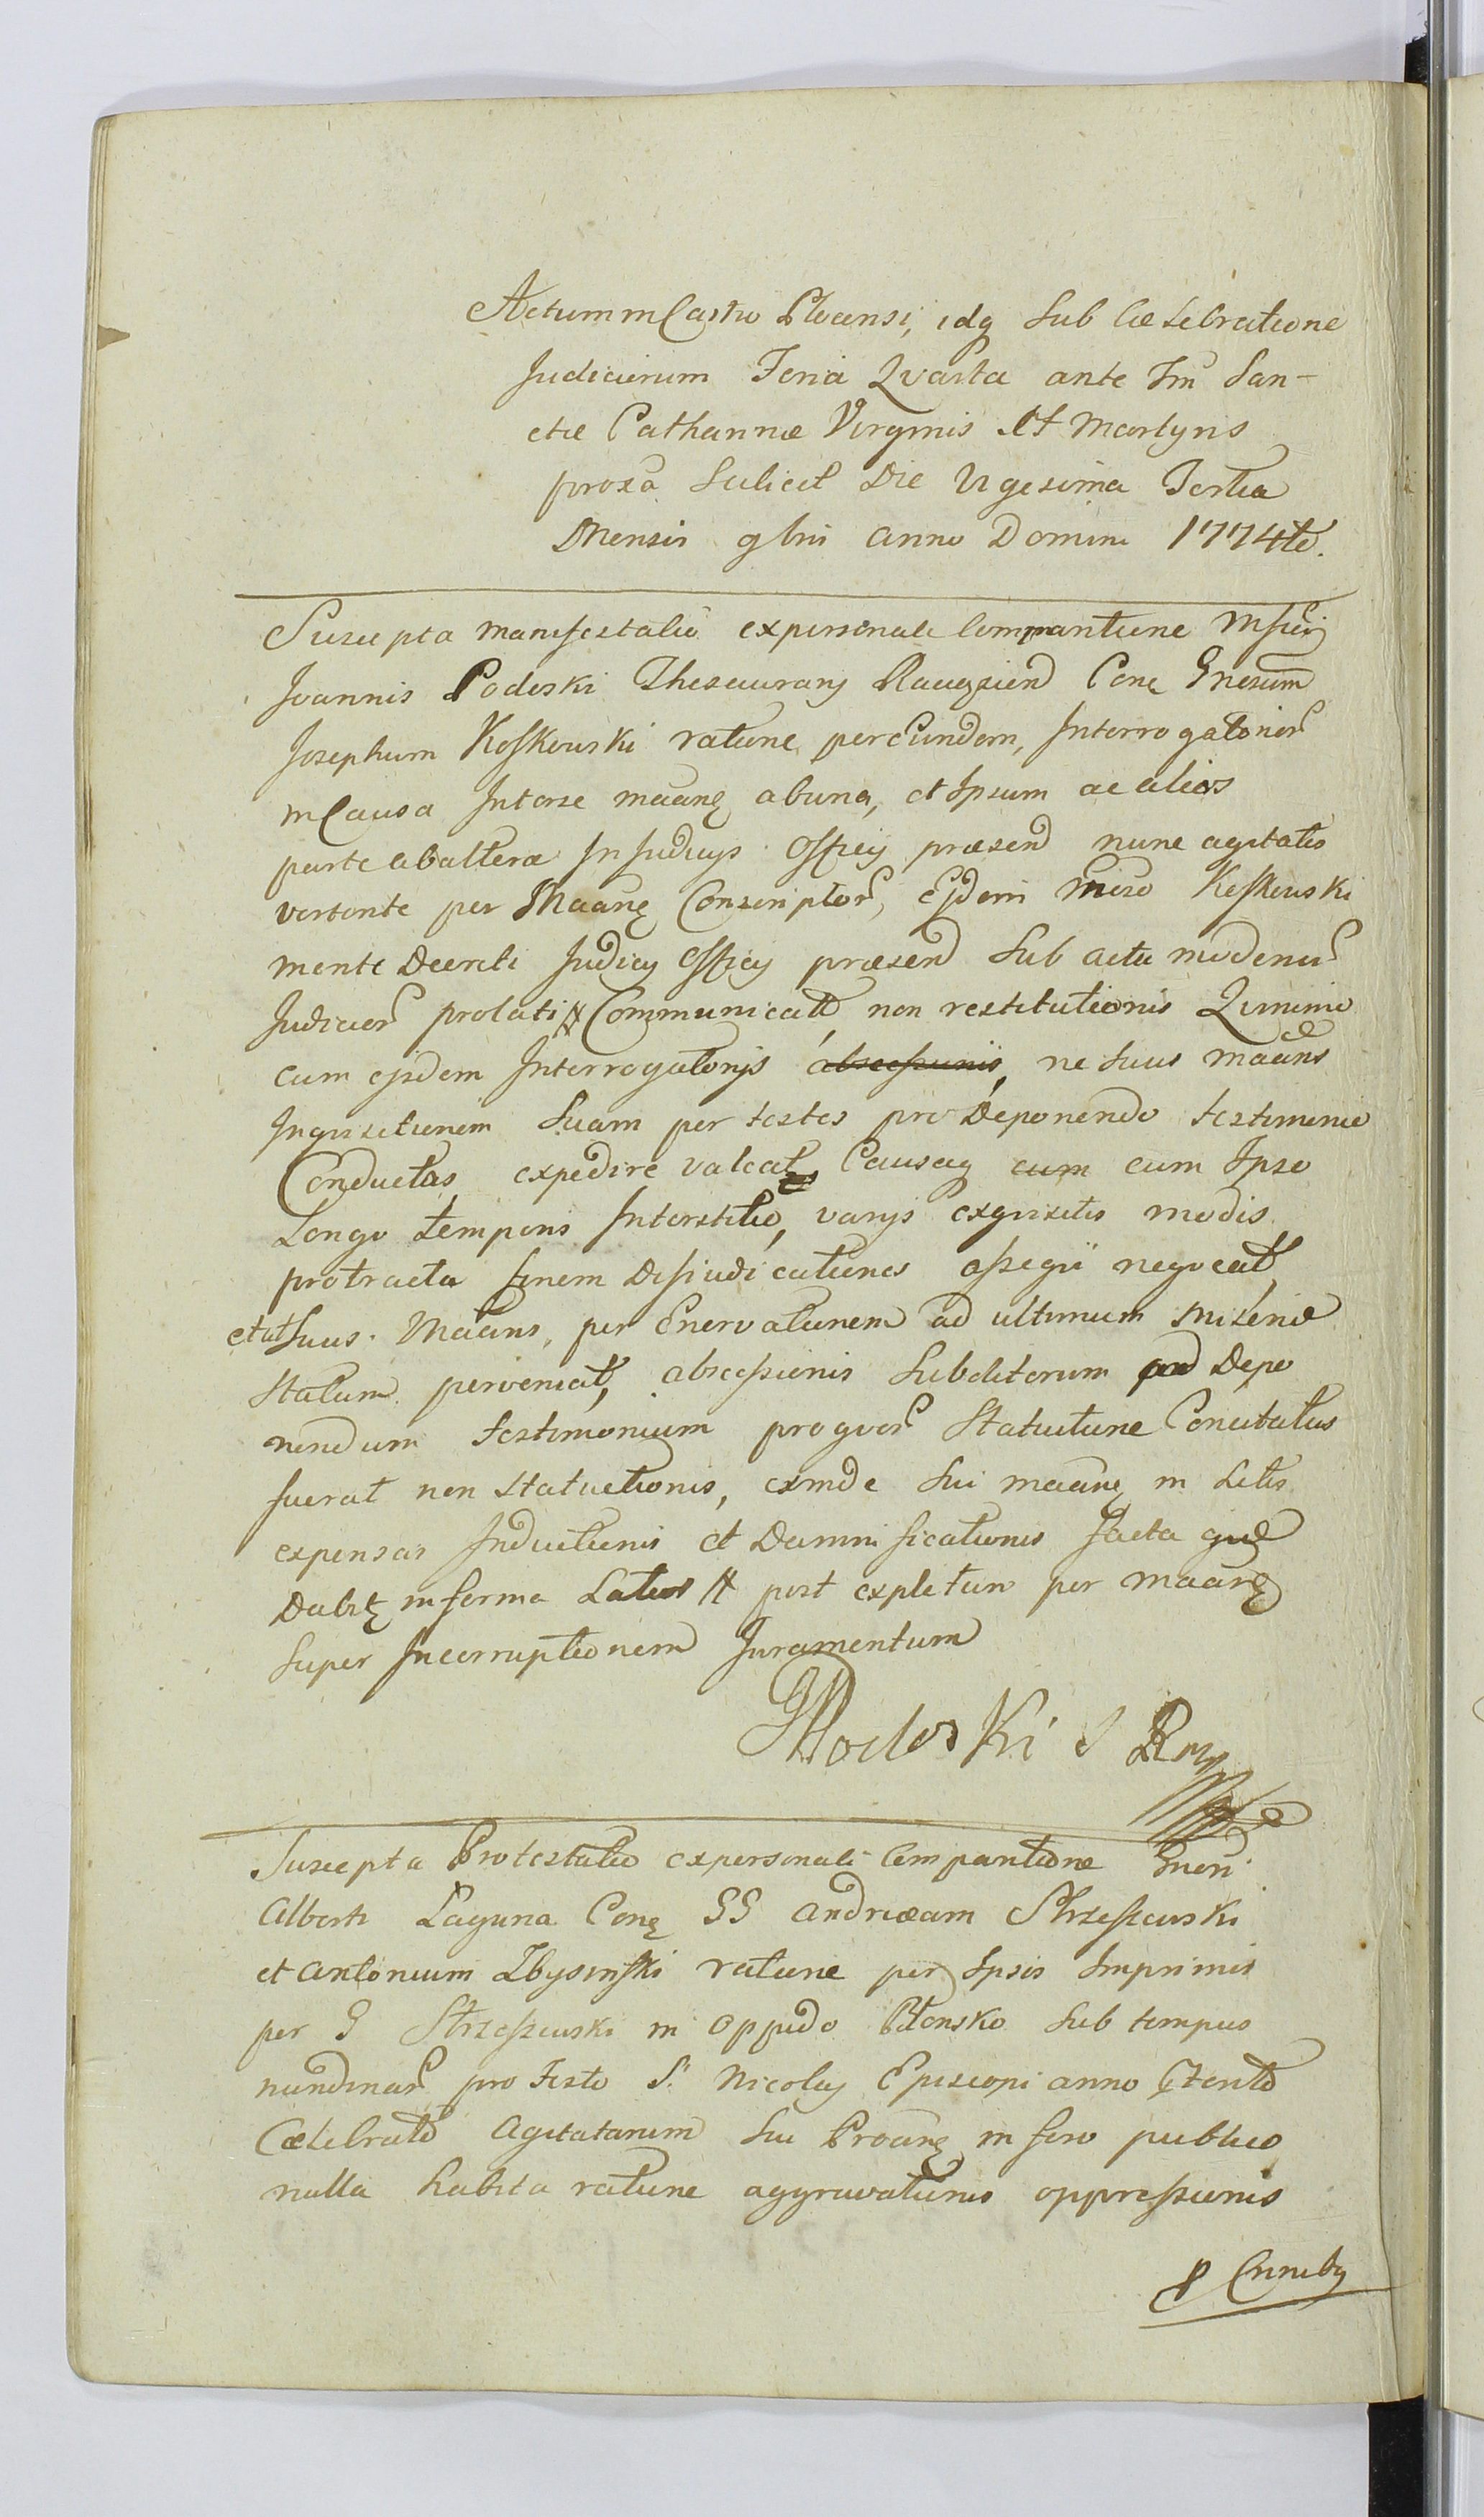 Actum in Castro Plocensi, idq sub Cælebratione
Judiciorum Feria Qvarta ante Fm̃ San-
ctæ Catharinæ Virginis et Martyris
proxã Scilicet Die Vigesima Tertia
Mensis 9bris anno Domini 1774to.
Suscepta manifestatio ex personali Comparitione Mfici
Joannis Podoski Thesaurarij Raciązien Conę Gnosum
Josephum Koſkowski ratione per eundem, Interrogatorior
in Causa Inter se maanę ab una, et Ipsum ac alios
parte ab altera In Judicijs Officij præsen nunc agitatis
vertente per Maanę Conscriptor, Ejdem Gnoso Koſkowski
mente Decreti Judicij Officij præsen sub actu modernor
Judicior prolati # Communicato non restitutionis Qvinimo
cum ejsdem Interrogatorijs abscessionis, ne suus maans
Inqvisitionem Suam per testes pro Deponendo testimonio
Conductos expedire valeat Causaq cum cum Ipso
Longo temporis Interstitio, varijs exqvisitis modis
protracta finem Disjudicationis assequi neqveat,
et ut suus Maans, per Enervationem ad ultimum miseriæ
Statum perveniat, abscessionis Subditorum ad Depo
nendum testimonium pro qvor Statuitione Concitatus
fuerat non statuitionis, exinde sui maanę in Litis
expensas Inductionis et Damnificationis facta qve
Dabitę in forma Latior # post expletum per maanę
Super Incorruptionem Juramentum
JPodoski S R
Suscepta Protestatio ex personali Comparitione Gnosi
Alberti Laguna Conę GG Andræam Strzeſzewski
et Antonium Zbysinſki ratione per Ipsos Imprimis
per G Strzeſzewski in oppido Płonsko sub tempus
nundinar pro Festo S. Nicolaj Episcopi anno
Cælebrato Agitatarum sui Proanę in foro publico
nulla habita ratione aggravationis oppressionis